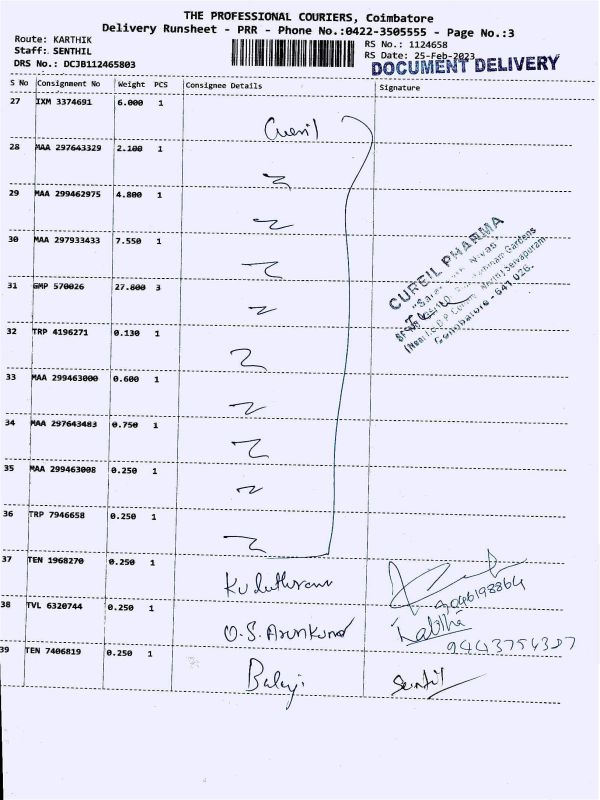 THE PROFESSIONAL COURIERS, Coimbatore
Delivery Runsheet - PRR - Phone No.:0422-3505555 - Page No.:3
Route: KARTHIK
RS No.: 1124658
Staff: SENTHIL
RS Date: 25-Feb-2023
DRS No.: DCJB112465803
DOCUMENT DELIVERY
S No Consignment No Weight PCS Consignee Details Signature
27 IXM 3374691 6.000 1
Cureil
28 MAA 297643329 2.100 1
29 MAA 299462975 4.800 1
30 MAA 297933433 7.550 1
CUREIL PHARMA
31 GMP 570026 27.800 3
Coimbatore - 641 026.
32 TRP 4196271 0.130 1
33 MAA 299463000 0.600 1
34 MAA 297643483 0.750 1
35 MAA 299463008 0.250 1
36 TRP 7946658 0.250 1
37 TEN 1968270 0.250 1
9046198864
38 TVL 6320744 0.250 1
O.S. Arunkumar Kabitha
9443754387
39 TEN 7406819 0.250 1
Balaji Sentil